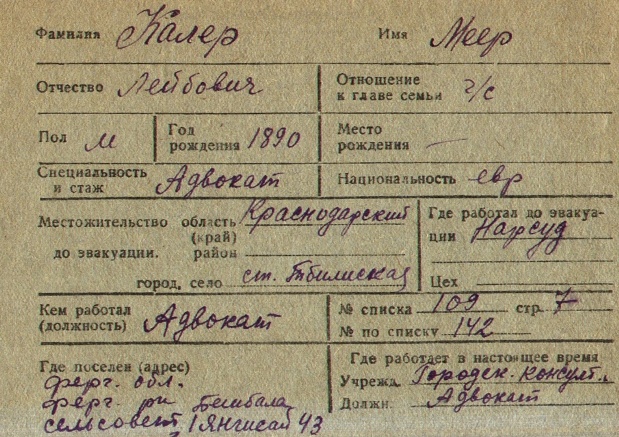 Фамилия Калер Имя Меер
Отчество Лейбович Отношение к главе семьи г/с
Пол м Год рождения 1890 Место рождения —
Специальность и стаж Адвокат Национальность евр
Местожительство до эвакуации. область (край) Краснодарский
район
город, село ст. Тбилиская
Где работал до эвакуации Нарсуд
Цех
Кем работал (должность) Адвокат
№ списка 109 стр. 7
№ по списку 142
Где поселен (адрес)
ферг. обл.
ферг. рн
сельсовет 43
Где работает в настоящее время
Учрежд. Городск. Консулт.
Должн. Адвокат